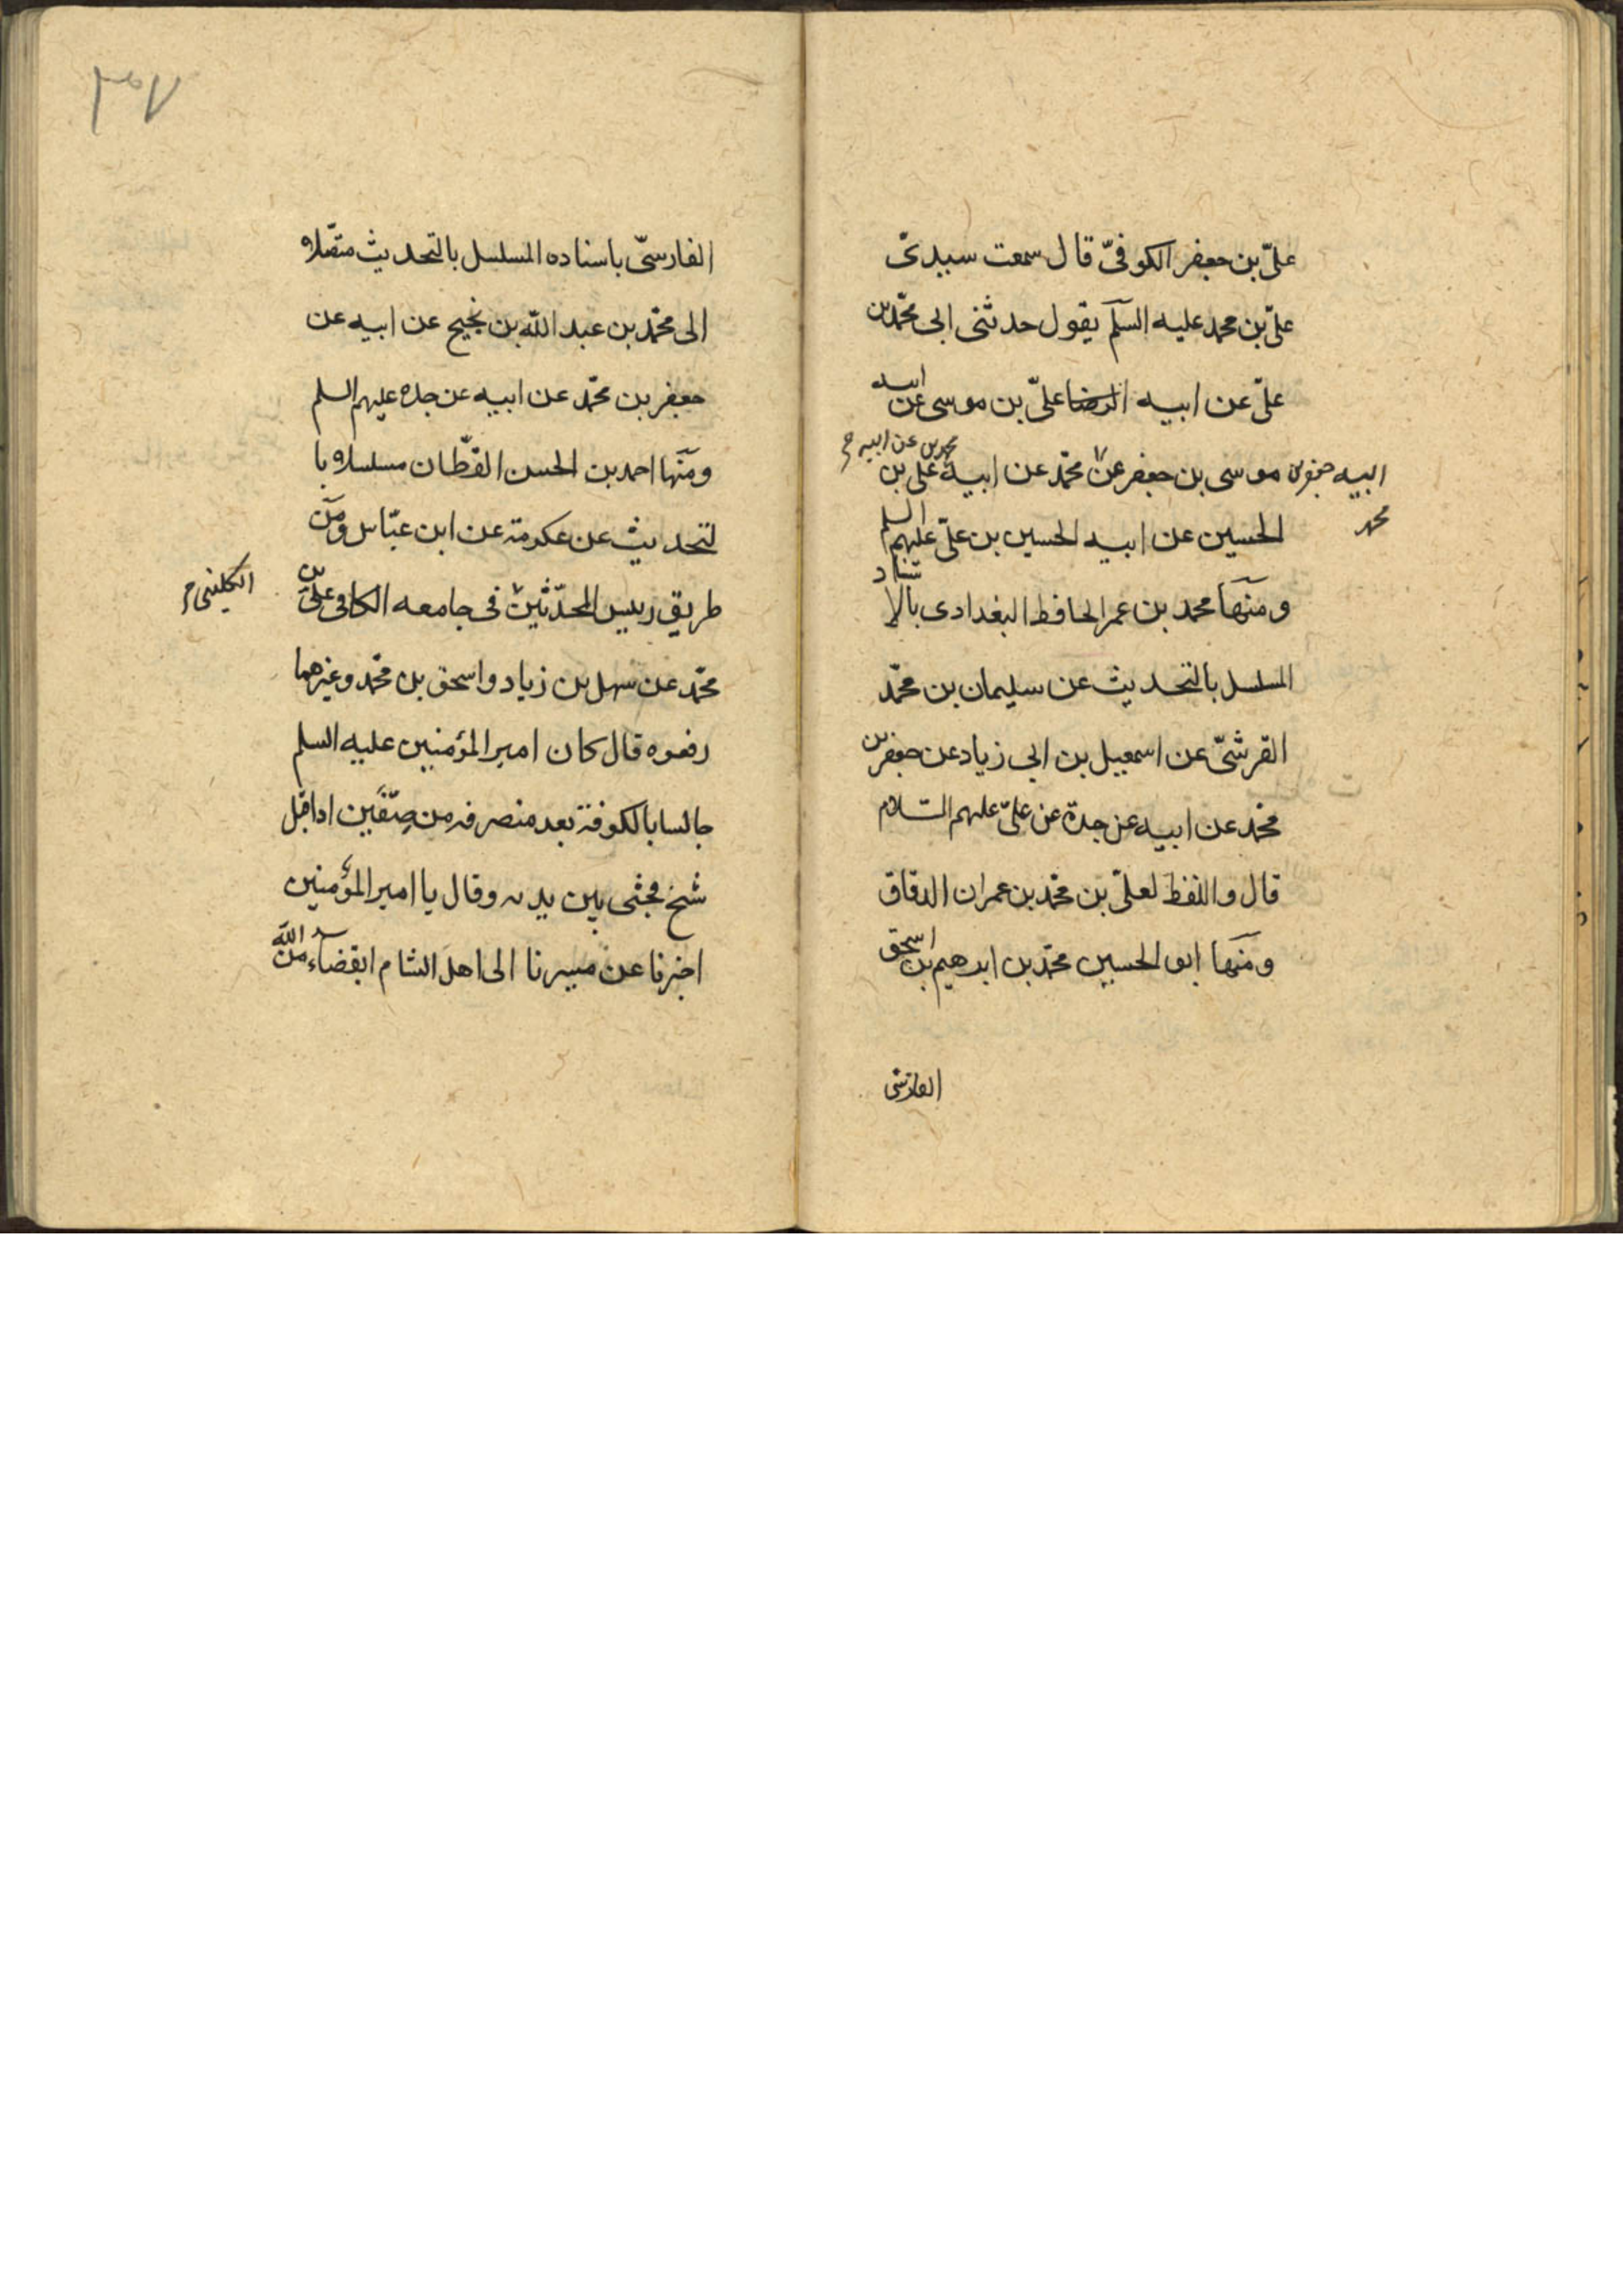 علىّ بن جعفر الكوفىّ قال سمعت سيدى
علىّ بن محمد عليه السلم يقول حدثنى ابى محمّد بن
علىّ عن ابيه الرضا علىّ بن موسى عن ابيه
موسى بن جعفر عن محمّد عن ابيه على بن
ابيه جعفر بن
محمد
محمد بن عن ابيه
الحسين عن ابيه الحسين بن علىّ عليهم السلم
ومنها محمد بن عمر الحافظ البغدادى بالاسناد
المسلسل بالتحديث عن سليمان بن محمّد
القرشىّ عن اسمعيل بن ابى زياد عن جعفر بن
محمّد عن ابيه عن جدّه عن علىّ عليهم السّلام
قال واللفظ لعلىّ بن محمّد بن عمران الدقاق
ومنها ابو الحسين محمّد بن ابرهيم بن اسحق
الفارسى
٣٠٧
الفارسىّ باسناده المسلسل بالتحديث متصّلا
الى محمّد بن عبد اللّه بن نجيح عن ابيه عن
جعفر بن محمّد عن ابيه عن جده عليهم السلم
ومنها احمد بن الحسن القطّان مسلسلا با
لتحديث عن عكرمة عن ابن عبّاس ومن
طريق رييس المحدّثين فى جامعه الكافى علىّ بن
الكلينى
محمّد عن سهل بن زياد واسحق بن محمّد وغيرهما
رفعوه قال كان امير المؤمنين عليه السلم
جالسا بالكوفة بعد منصرفه من صِفّين اذ اقبل
شيخ فجثى بين يديه وقال يا امير المؤمنين
اخبرنا عن مسيرنا الى اهل الشام ابقضاء من اللّه